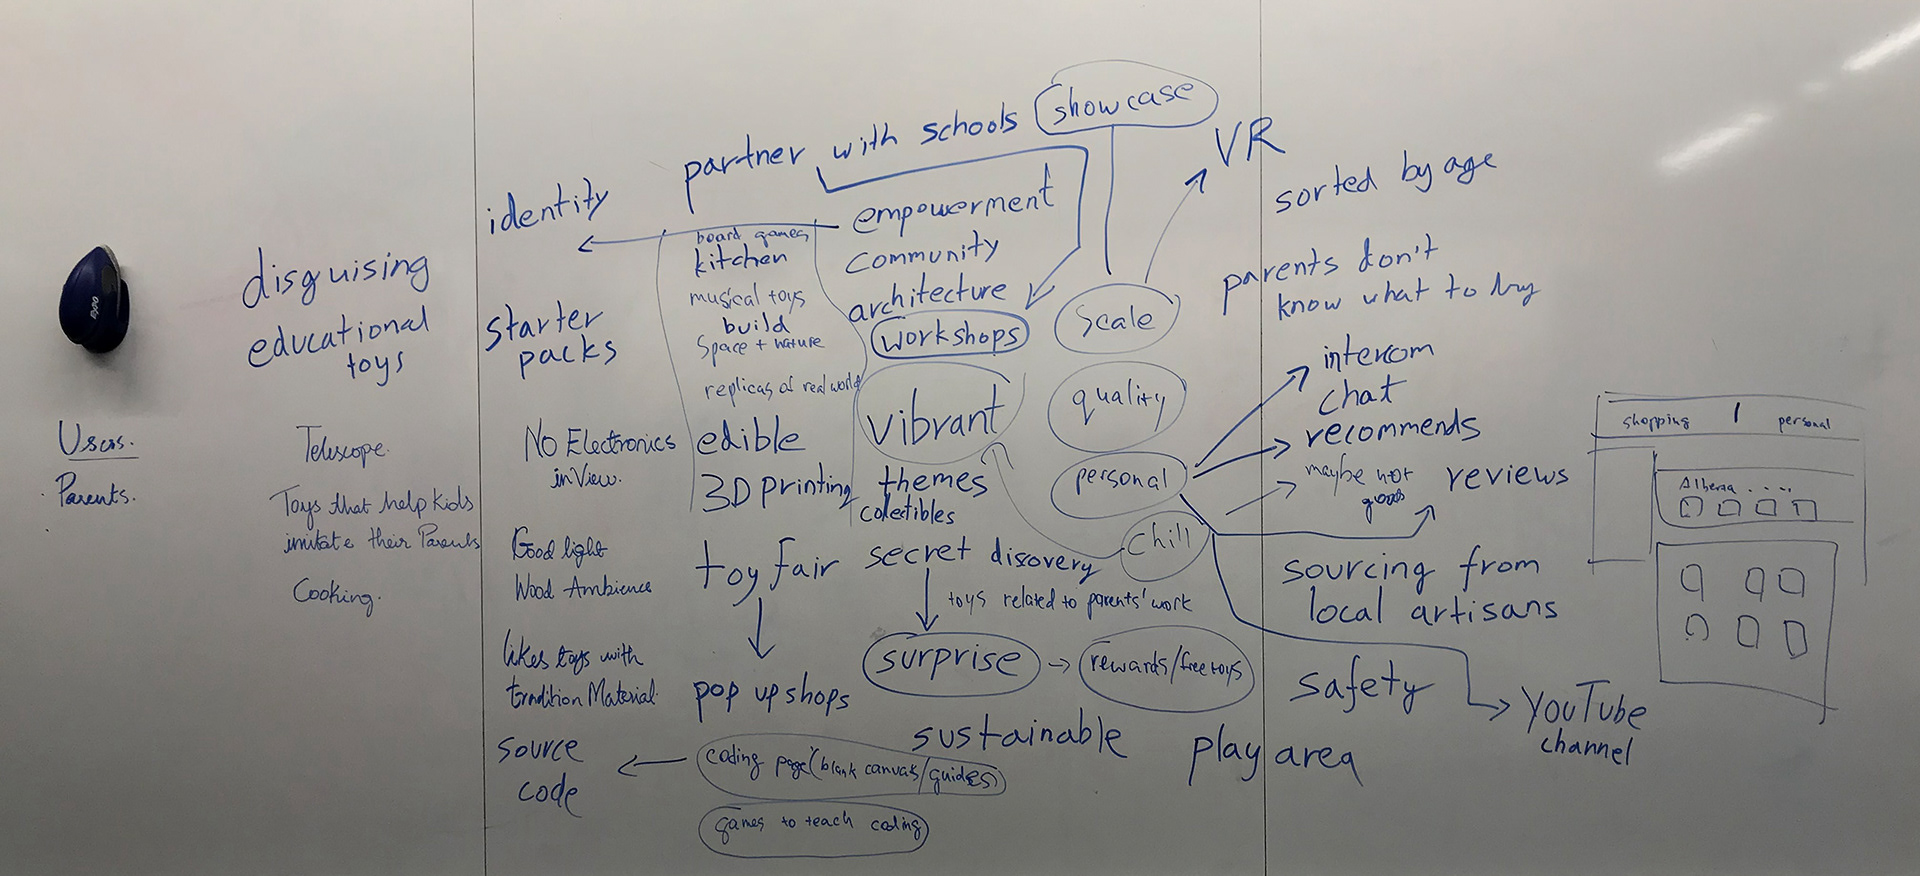 showcase
partner with schools
VR
sorted by age
identity
empowerment
board games
kitchen
community
disguising
educational
toys
parents don't
know what to buy
musical toys
architecture
starter
packs
build
Space + nature
workshops
Scale
intercom
chat
replicas of real world
vibrant
quality
recommends
shopping
personal
Users.
Parents.
Telescope.
No Electronics
in View.
edible
3D printing
themes
colectibles
personal
maybe not
good
reviews
Toys that help Kids
imitate their Parents
Cooking.
Good light
Wood Ambience
toy fair
secret discovery
chill
toys related to parents' work
sourcing from
local artisans
likes toys with
tradition Material.
pop up shops
surprise
rewards/free toys
safety
YouTube
channel
sustainable
play area
source
code
coding page (blank canvas/guides)
games to teach coding
EXPO